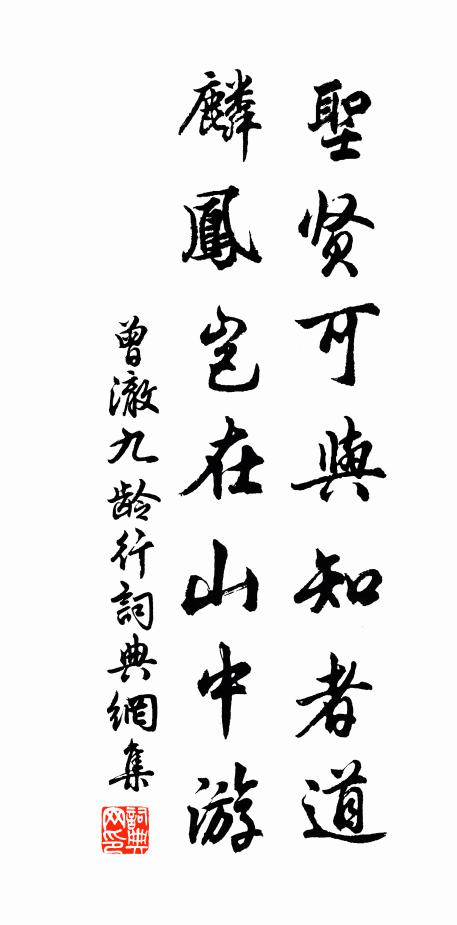 聖贤可與知者道
麟鳳岂在山中游
曾澈九龄行詞典網集
詞典网印